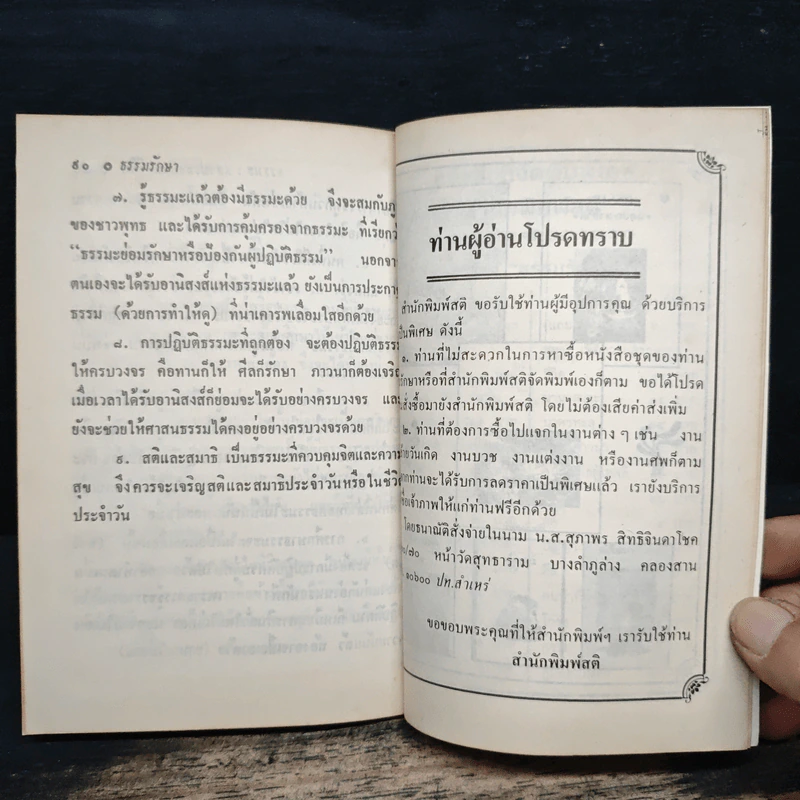 ๙๐ ๏ ธรรมรักษา
๗. รู้ธรรมะแล้วต้องมีธรรมะด้วย จึงจะสมกับภู
ของชาวพุทธ และได้รับการคุ้มครองจากธรรมะ ที่เรียกว
"ธรรมะย่อมรักษาหรือป้องกันผู้ปฏิบัติธรรม" นอกจา
ตนเองจะได้รับอานิสงส์แห่งธรรมะแล้ว ยังเป็นการประกา
ธรรม (ด้วยการทำให้ดู) ที่น่าเคารพเลื่อมใสอีกด้วย
๘. การปฏิบัติธรรมะที่ถูกต้อง จะต้องปฏิบัติธรรม
ให้ครบวงจร คือทานก็ให้ ศีลก็รักษา ภาวนาก็ต้องเจริ
เมื่อเวลาได้รับอานิสงส์ก็ย่อมจะได้รับอย่างครบวงจร แล
ยังจะช่วยให้ศาสนธรรมได้คงอยู่อย่างครบวงจรด้วย
๙. สติและสมาธิ เป็นธรรมะที่ควบคุมจิตและความ
สุข จึงควรจะเจริญสติและสมาธิประจำวันหรือในชีวิ
ประจำวัน
ท่านผู้อ่านโปรดทราบ
สำนักพิมพ์สติ ขอรับใช้ท่านผู้มีอุปการคุณ ด้วยบริการ
เป็นพิเศษ ดังนี้
๑. ท่านที่ไม่สะดวกในการหาซื้อหนังสือชุดของท่าน
รักษาหรือที่สำนักพิมพ์สติจัดพิมพ์เองก็ตาม ขอได้โปรด
สั่งซื้อมายังสำนักพิมพ์สติ โดยไม่ต้องเสียค่าส่งเพิ่ม
๒. ท่านที่ต้องการซื้อไปแจกในงานต่าง ๆ เช่น งาน
วันเกิด งานบวช งานแต่งงาน หรืองานศพก็ตาม
ท่านจะได้รับการลดราคาเป็นพิเศษแล้ว เรายังบริการ
เจ้าภาพให้แก่ท่านฟรีอีกด้วย
โดยธนาณัติสั่งจ่ายในนาม น.ส.สุภาพร สิทธิจินดาโชค
/๗๐ หน้าวัดสุทธาราม บางลำภูล่าง คลองสาน
๑๐๖๐๐ ปท.สำเหร่
ขอขอบพระคุณที่ให้สำนักพิมพ์ฯ เรารับใช้ท่าน
สำนักพิมพ์สติ